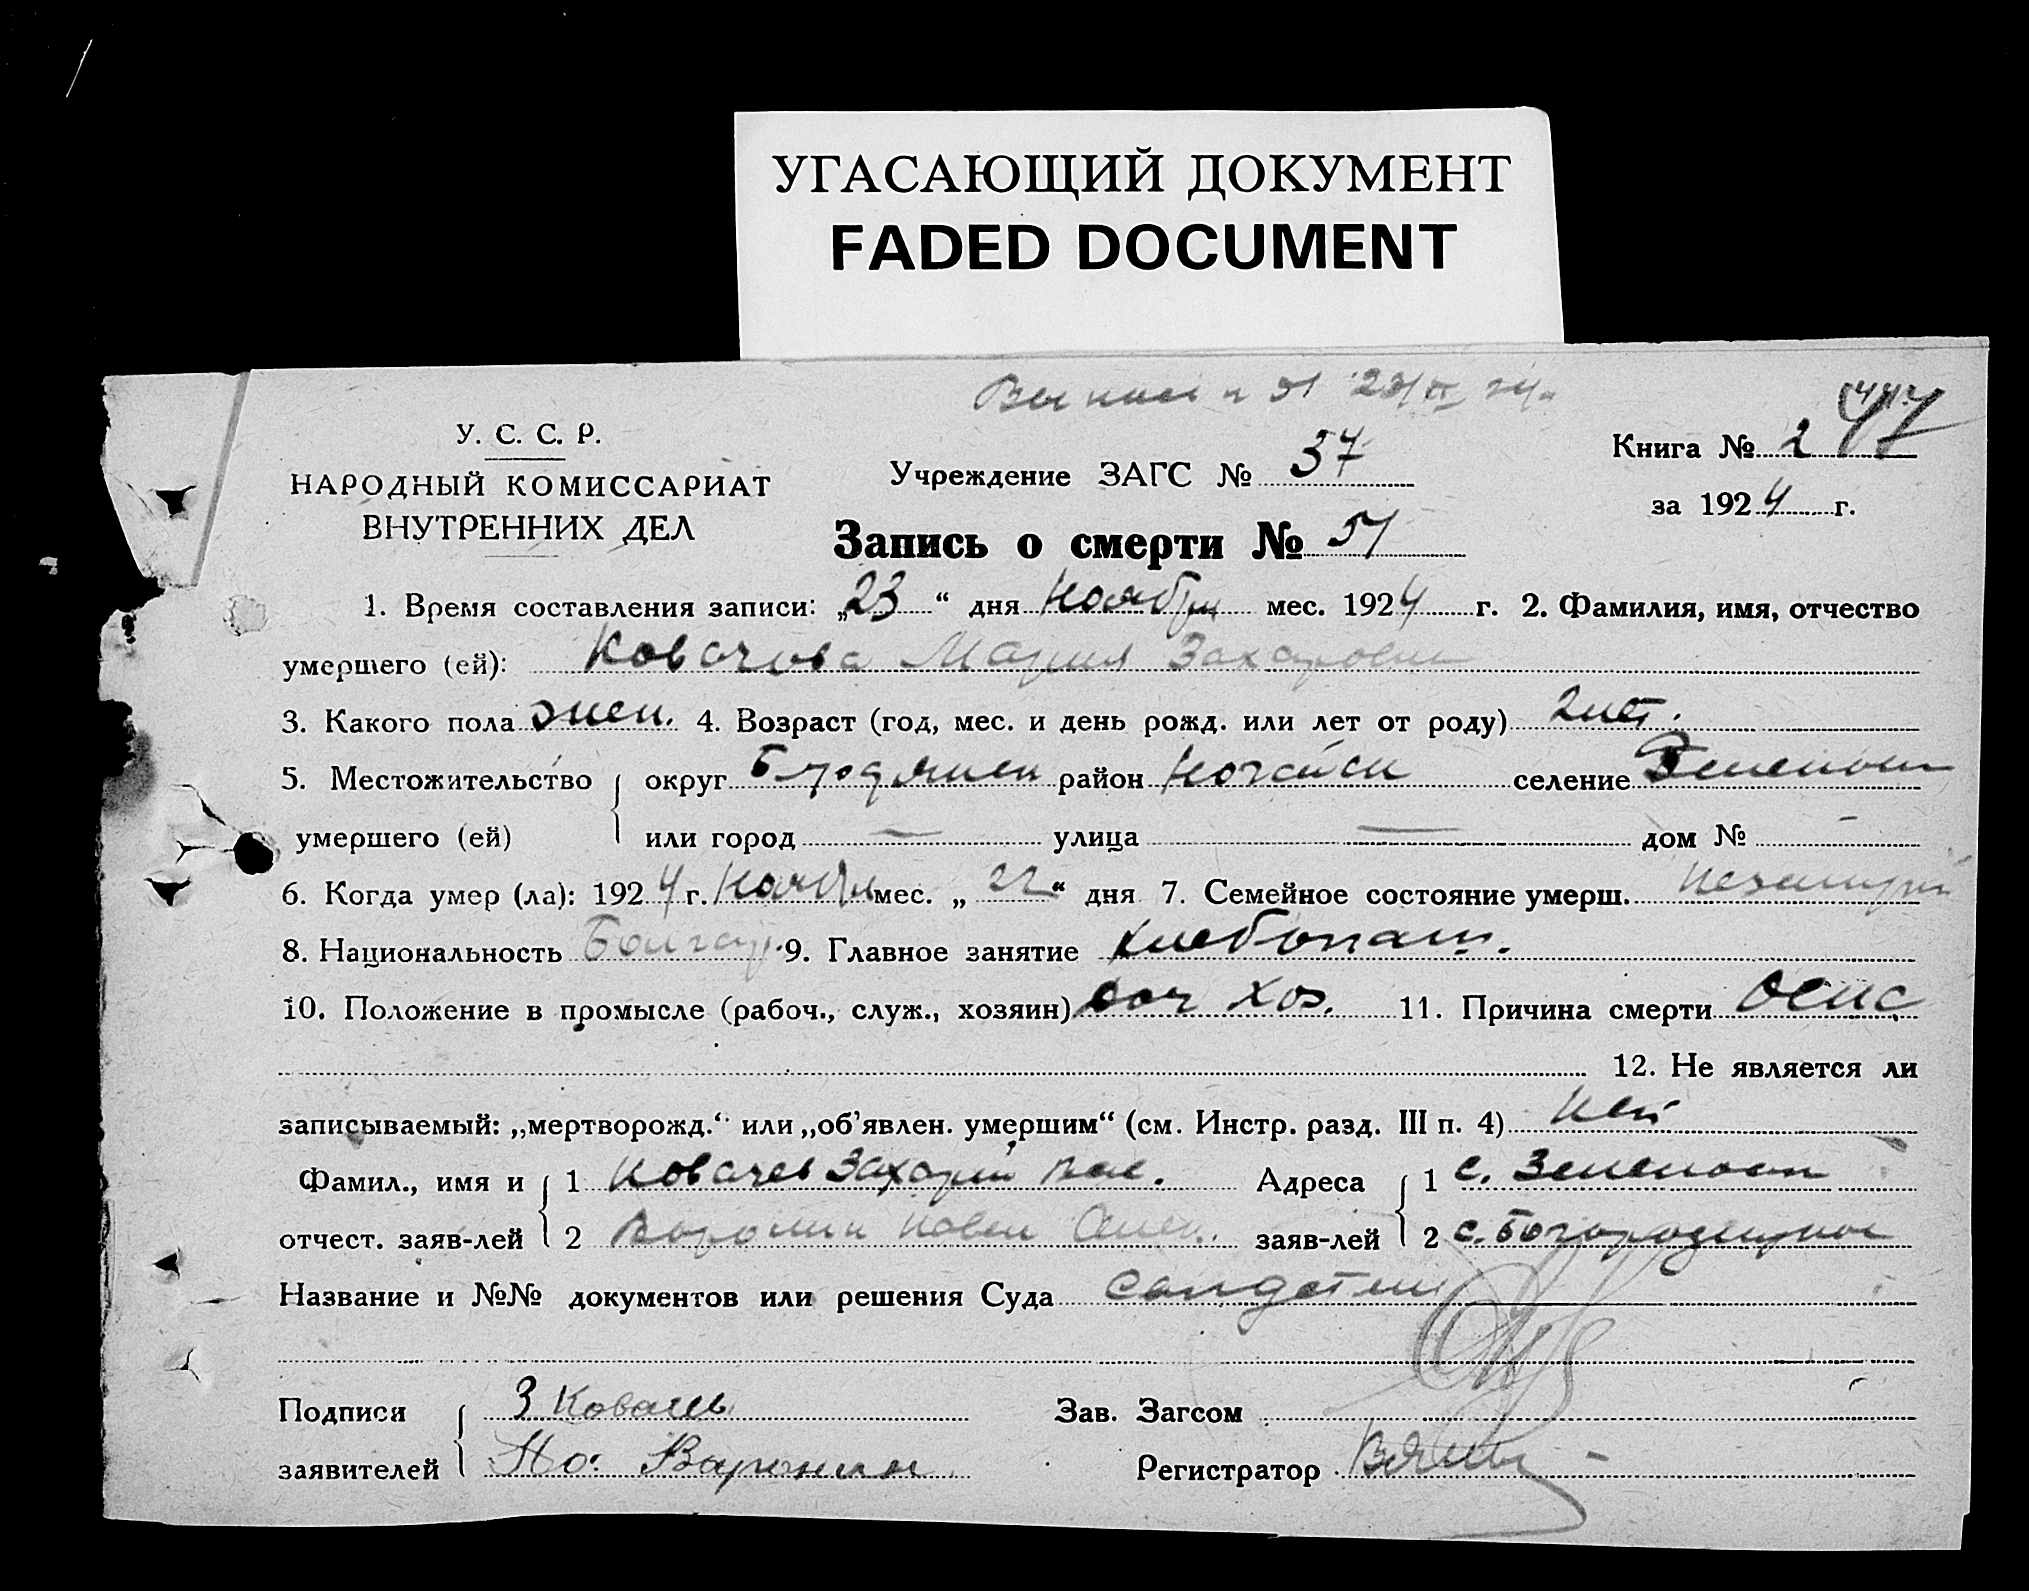 УГАСАЮЩИЙ ДОКУМЕНТ
FADED DOCUMENT
У. С. С. Р.
НАРОДНЫЙ КОМИССАРИАТ
ВНУТРЕННИХ ДЕЛ
Учреждение ЗАГС № 37
Книга № 2
за 1924 г.
Запись о смерти № 51
1. Время составления записи: „23“ дня Ноября мес. 1924 г. 2. Фамилия, имя, отчество
умершего (ей): Ковачова Мария Захаровна
3. Какого пола жен. 4. Возраст (год, мес. и день рожд. или лет от роду) 2 лет.
5. Местожительство округ Бердянск район Ногайск селение Зеленовка
умершего (ей) или город — улица — дом №
6. Когда умер (ла): 1924 г. Ноября мес. „22“ дня 7. Семейное состояние умерш.
8. Национальность Болгар. 9. Главное занятие хлебопаш.
10. Положение в промысле (рабоч., служ., хозяин) доч хоз. 11. Причина смерти Оспа
12. Не является ли
записываемый: „мертворожд.“ или „об'явлен. умершим“ (см. Инстр. разд. III п. 4) Нет
Фамил., имя и 1 Ковачев Захарий Вас. Адреса 1 с.
отчест. заяв-лей 2 Воронин Павел заяв-лей 2 с.
Название и №№ документов или решения Суда
Подписи З Ковачев Зав. Загсом
заявителей Воронин Регистратор